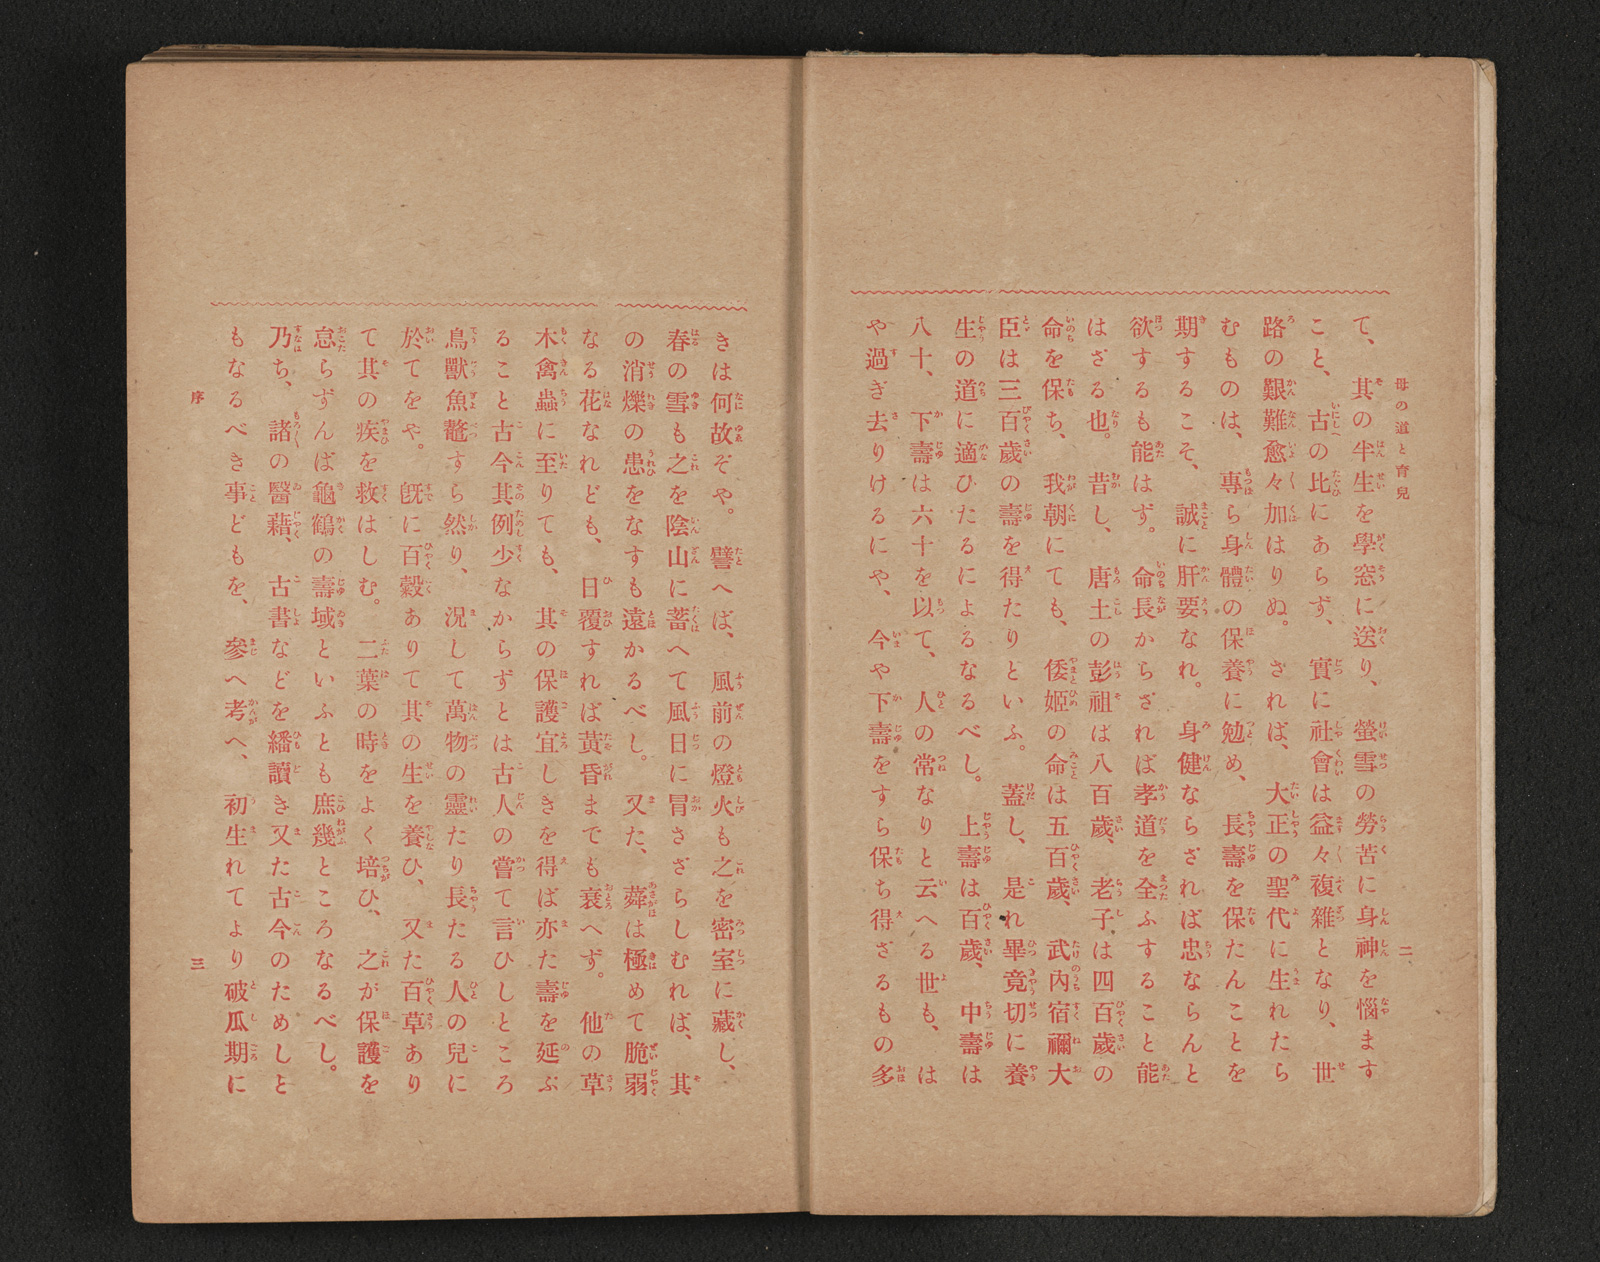 母の道と育兒
二
て、其の半生を學窓に送り、螢雪の勞苦に身神を惱ます
こと、古の比にあらず、實に社會は益々複雜となり、世
路の艱難愈々加はりぬ。されば、大正の聖代に生れたら
むものは、專ら身體の保養に勉め、長壽を保たんことを
期するこそ、誠に肝要なれ。身健ならざれば忠ならんと
欲するも能はず。命長からざれば孝道を全ふすること能
はざる也。昔し、唐土の彭祖は八百歲、老子は四百歲の
命を保ち、我朝にても、倭姬の命は五百歲、武內宿禰大
臣は三百歲の壽を得たりといふ。蓋し、是れ畢竟切に養
生の道に適ひたるによるなるべし。上壽は百歲、中壽は
八十、下壽は六十を以て、人の常なりと云へる世も、は
や過ぎ去りけるにや、今や下壽をすら保ち得ざるもの多
きは何故ぞや。譬へば、風前の燈火も之を密室に藏し、
春の雪も之を陰山に蓄へて風日に冒さざらしむれば、其
の消爍の患をなすも遠かるべし。又た、蕣は極めて脆弱
なる花なれども、日覆すれば黃昏までも衰へず。他の草
木禽蟲に至りても、其の保護宜しきを得ば亦た壽を延ぶ
ること古今其例少なからずとは古人の嘗て言ひしところ
鳥獸魚鼈すら然り、況して萬物の靈たり長たる人の兒に
於てをや。旣に百穀ありて其の生を養ひ、又た百草あり
て其の疾を救はしむ。二葉の時をよく培ひ、之が保護を
怠らずんば龜鶴の壽域といふとも庶幾ところなるべし。
乃ち、諸の醫藉、古書などを繙讀き又た古今のためしと
もなるべき事どもを、參へ考へ、初生れてより破瓜期に
序
三